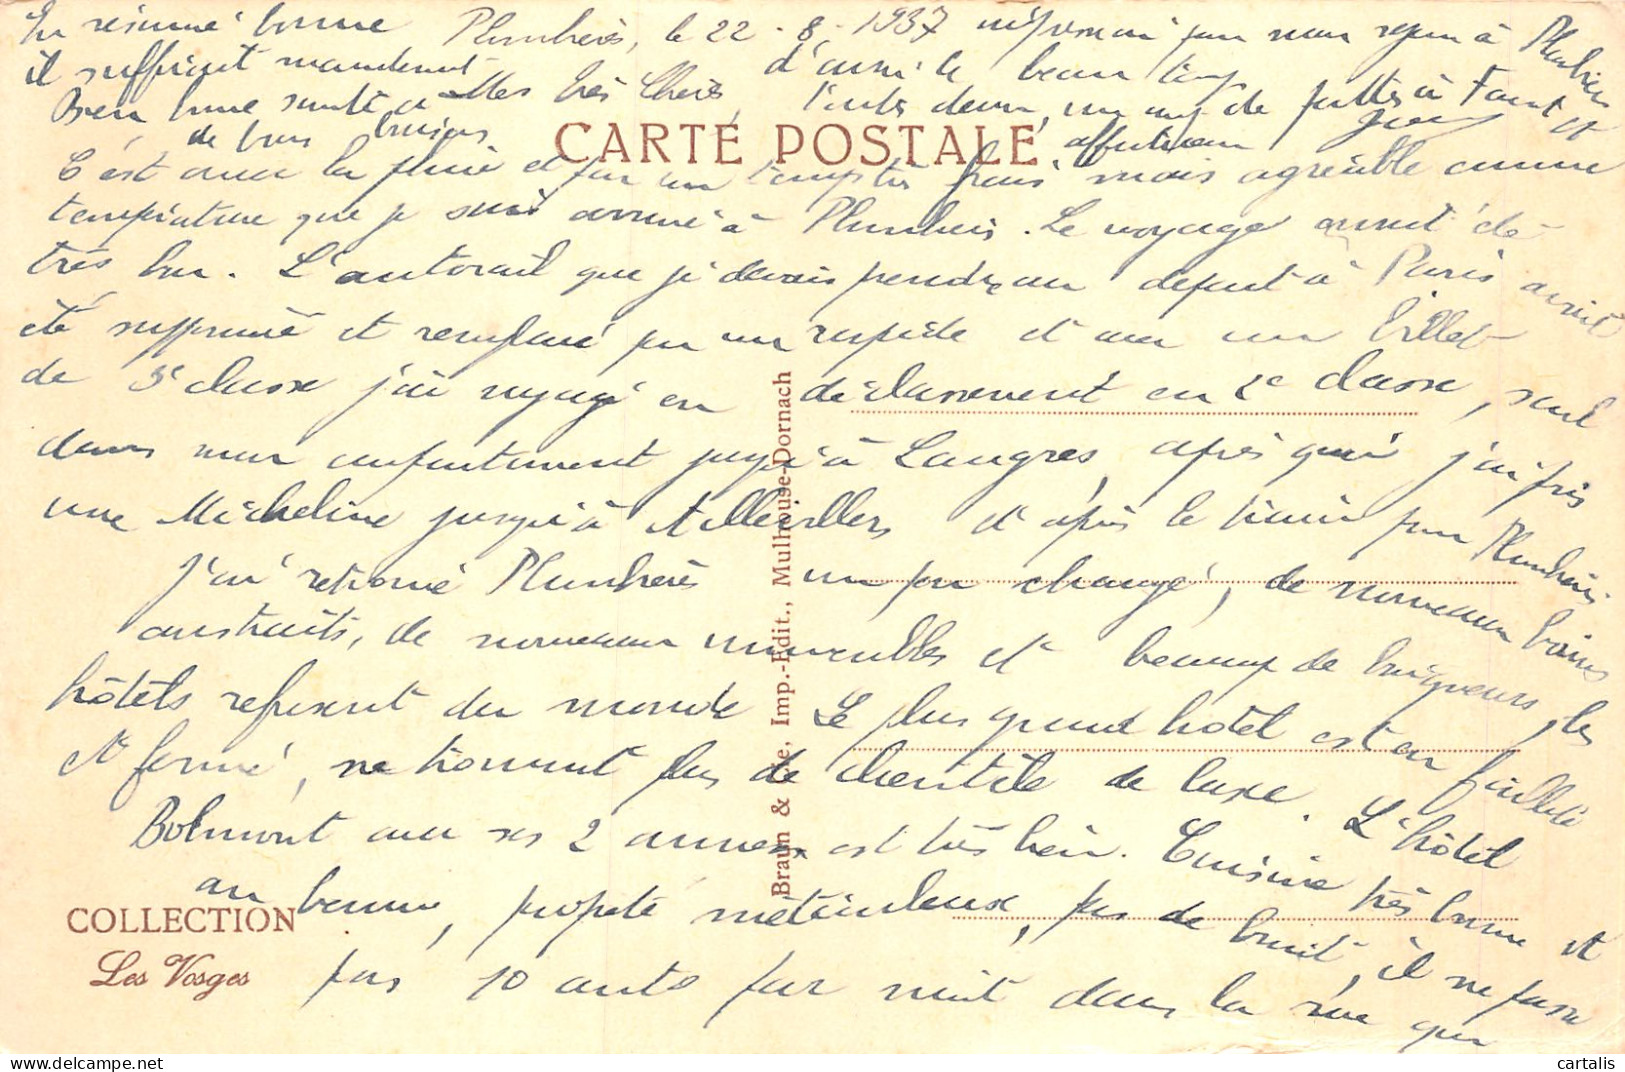 En résumé bonne
Plombières, le 22-8-1937
impression pour mon séjour à Plombières
il suffirait maintenant
d'avoir le beau temps
Bien bonne santé et
Mes très Chers,
à vous deux, un de Faust et
de bons baisers
affectueux
CARTE POSTALE
C'est avec la pluie et par un temps très frais mais agréable comme
température que je suis arrivé à Plombières. Le voyage avait été
très bon. L'autorail que je devais prendre au départ à Paris avait
été supprimé et remplacé par un rapide et avec un billet
de 3e classe j'ai voyagé en déclassement en 2e classe, seul
dans mon compartiment jusqu'à Langres, après quoi j'ai pris
une Micheline jusqu'à Aillevillers et après le train pour Plombières
J'ai retrouvé Plombières un peu changé, de nouveaux bains
construits, de nouveaux immeubles et beaucoup de baigneurs, les
hôtels refusent du monde. Le plus grand hôtel est en faillite
et fermé, ne trouvant plus de clientèle de luxe. L'hôtel
Bolmont avec ses 2 annexes est très bien. Cuisine très bonne et
abondante, propreté méticuleuse, pas de bruit, il ne passe
pas 10 autos par nuit dans la rue que
Braun & Cie, Imp.-Edit., Mulhouse-Dornach
COLLECTION
Les Vosges
cartalis